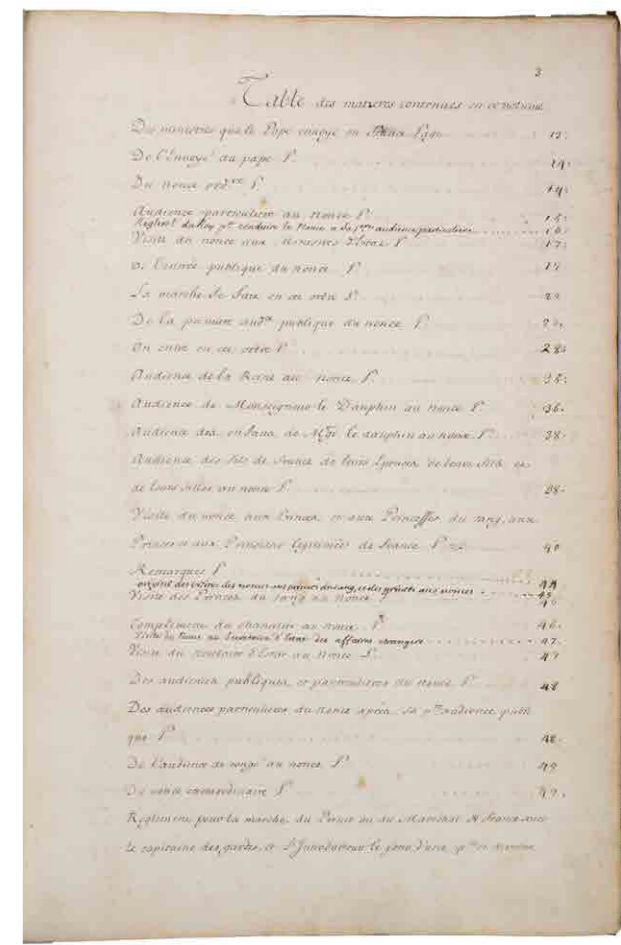 3
Table des matieres contenues en ce volume
Des ministres que le Pape envoye en France Page 12.
De l'Envoyé du pape P. 14.
Du nonce ord.re P. 14.
Audience particuliere au nonce P. 15.
Reglemt. du Roy pr. conduire le Nonce a sa pre. audience particuliere 16.
Visite du nonce aux P. 17.
De l'entrée publique du nonce P. 17
La marche se fait en cet ordre P. 22
De la premiere aud.ce publique du nonce P. 27.
On entre en cet ordre P. 28.
Audience de la Reine au nonce P. 35.
Audience de Monseigneur le Dauphin au nonce P. 36.
Audience des enfans de Mgr. le dauphin au nonce P. 38.
Audience des fils de France de leurs Epouses de leurs fils et
de leurs filles au nonce P. 38.
Visite du nonce aux Princes et aux Princesses du sang, aux
Princes et aux Princesses legitimées de France P. 40
Remarques P. 44
des nonces aux princes du sang, et des aux nonces 45
Visite des Princes du sang au nonce 46
Compliment du au nonce P. 46.
Visite du nonce au Secretaire d'Estat des affaires etrangeres 47.
Visite du secretaire d'Estat au nonce P. 47
Des audiences publiques et particulieres du nonce P. 48
Des audiences particulieres du nonce après sa pre. audience publi
que P. 48.
De l'audience de congé au nonce P. 49
Du nonce extraordinaire P. 49.
Reglement pour la marche du Prince ou du Marechal de France avec
le capitaine des gardes, et le jour d'une